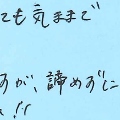 ても気ままで
すが、諦めずに
!!